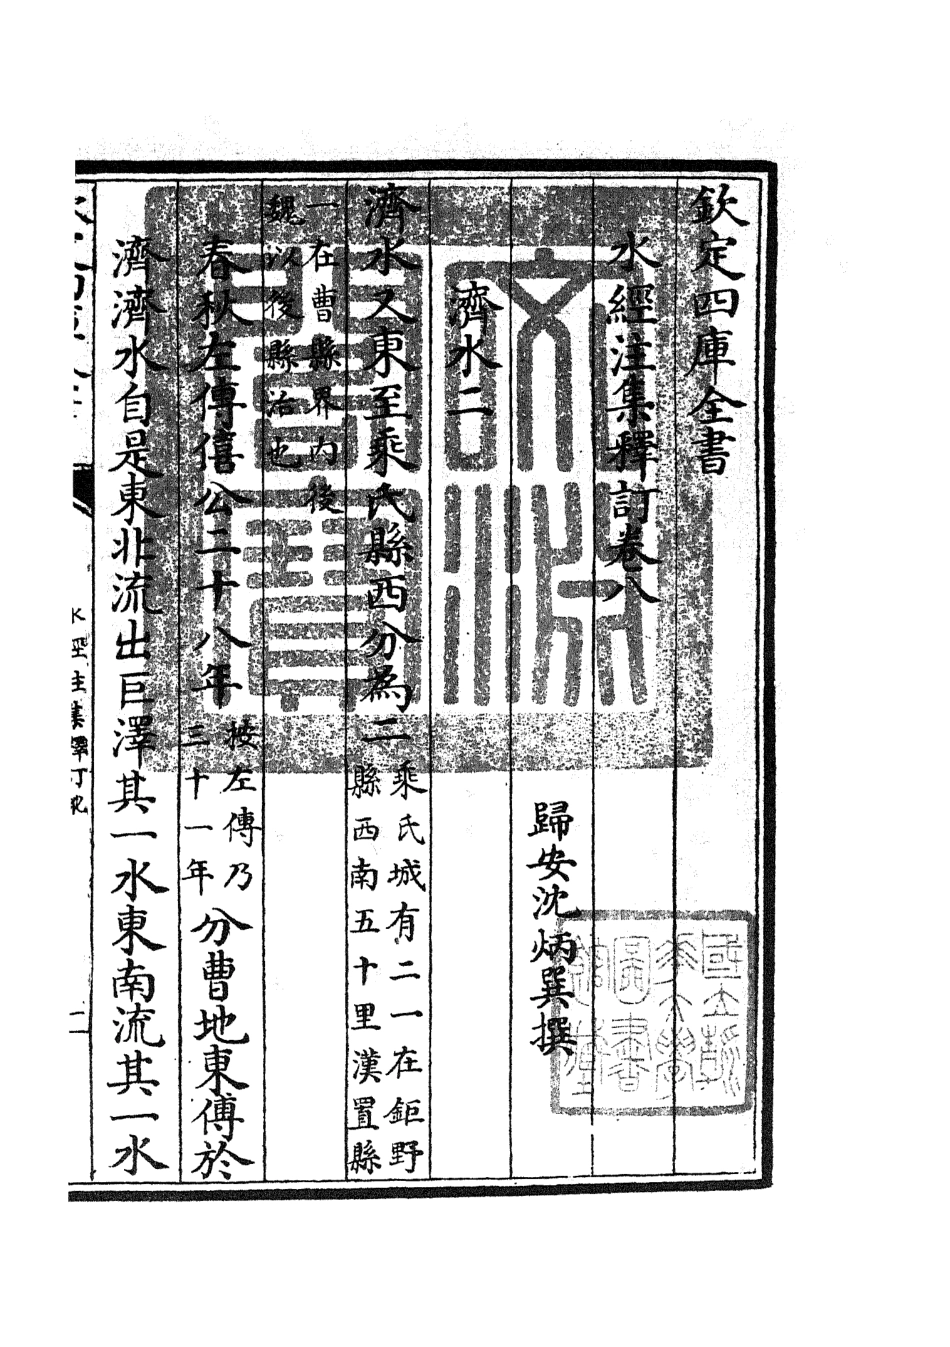 欽定四庫全書
水經注集釋訂卷八
歸安沈炳巽撰
濟水二
濟水又東至乘氏縣西分為二
乘氏城有二一在鉅野
縣西南五十里漢置縣
一在曹縣界内後
魏以後縣治也
春秋左傳僖公二十八年
按左傳乃
三十一年
分曹地東傅於
濟濟水自是東北流出巨澤其一水東南流其一水
水經注集釋訂
文淵閣寶